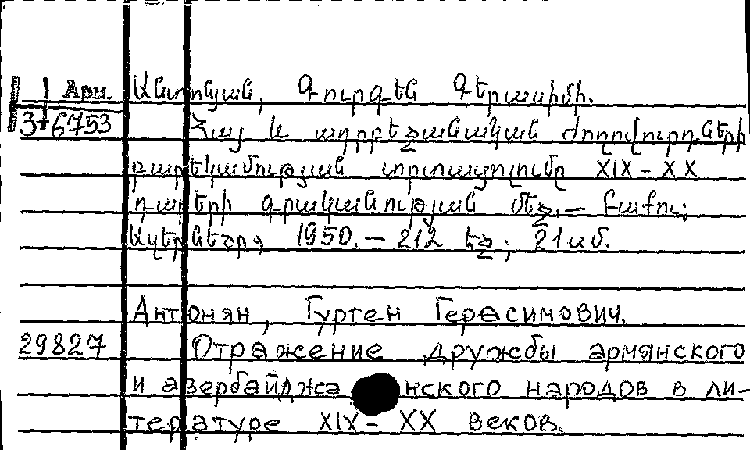 Арм. Անտոնյան, Գուրգեն Գերասիմի.
3+6753 Հայ և ադրբեջանական ժողովուրդների
բարեկամության արտացոլումը XIX - XX
դարերի գրականության մեջ. — Բաքու:
Ազերնեշր, 1950. — 212 էջ; 21սմ.
Антонян, Гурген Герасимович.
29827 Отражение дружбы армянского
и азербайджанского народов в ли-
тературе XIX - XX веков.